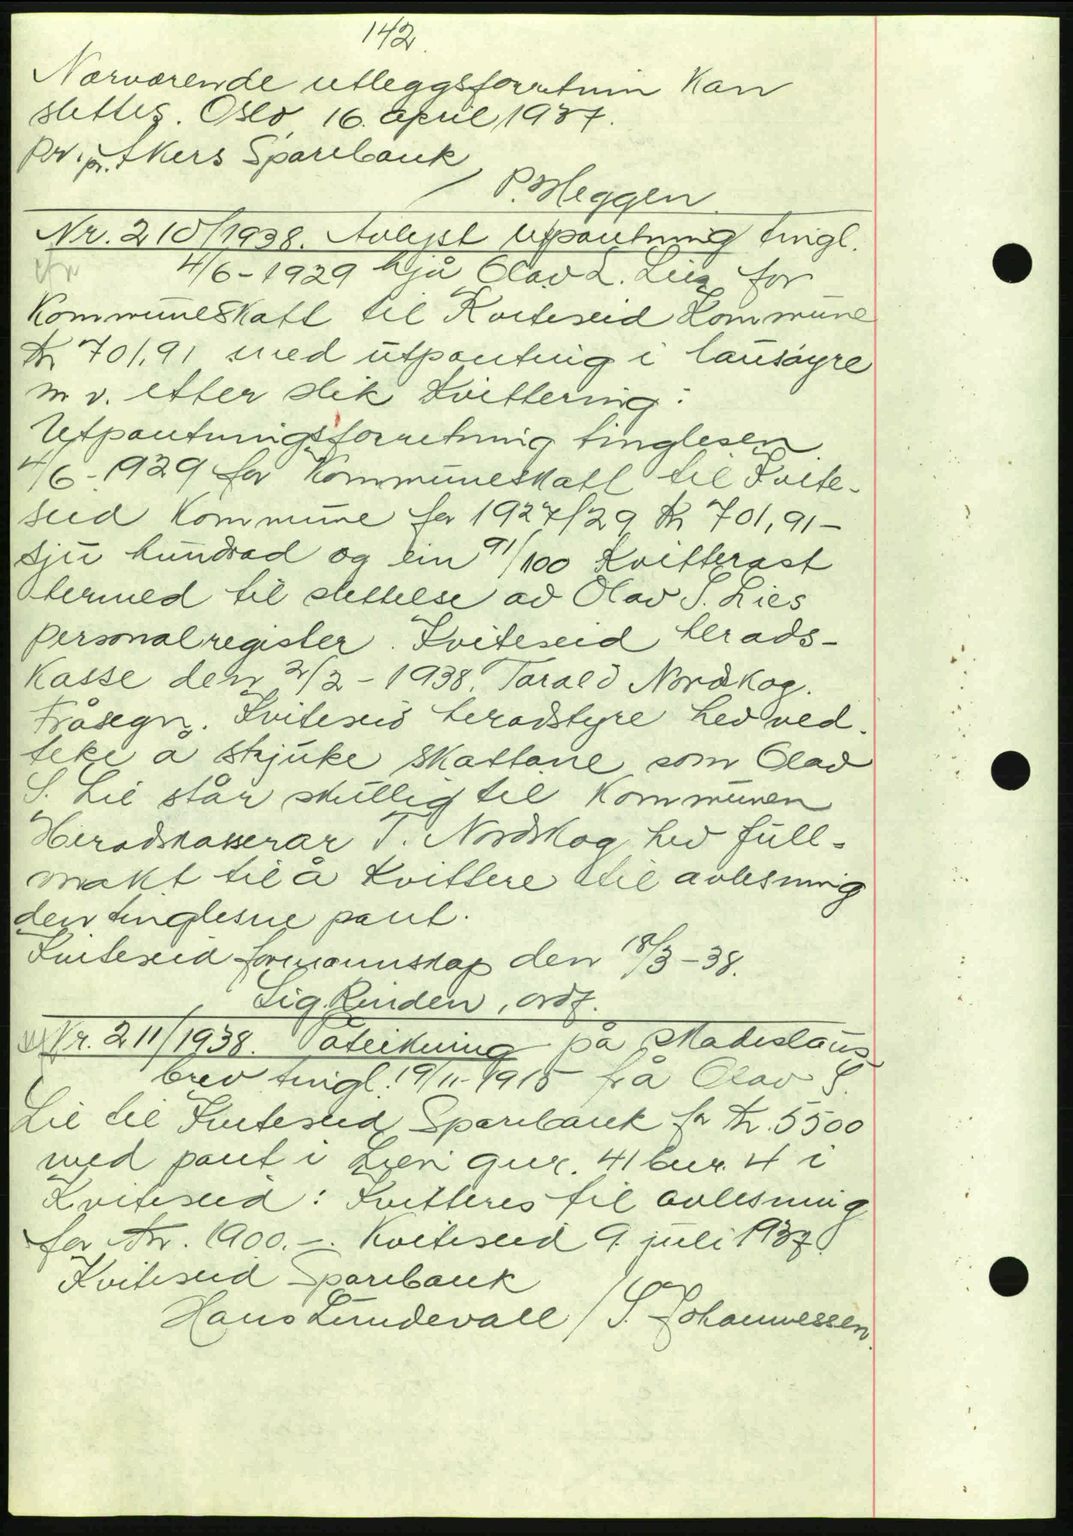 142.
Nærværende utleggsforretnin kan
slettes. Oslo 16. april 1937.
pr. pr. Akers Sparebank
P. Heggen.
Nr. 210/1938. Avlyst utpantning tingl.
4/6-1929 hjå Olav S. Lie for
Kommuneskatt til Kviteseid Kommune
kr 701,91 med utpantnig i lausøyre
m. v. etter slik kvittering:
Utpantningsforretning tinglesen
4/6-1929 for Kommuneskatt til Kvite-
seid Kommune for 1927/29 kr 701,91 -
sju hundrad og ein 91/100 Kvitterast
hermed til slettelse av Olav S. Lies
personalregister. Kviteseid herads-
kasse den 2/2-1938. Tarald Nordskog.
Fråsegn. Kviteseid heradstyre hev ved-
teke å strjuke skattane som Olav
S. Lie står skuldig til Kommunen
Heradskasserar T. Nordskog hev full-
makt til å kvittere til avlesning
den tinglesne pant.
Kviteseid formannskap den 18/3-38.
Sig. Rinden, ordf.
Nr. 211/1938. Påteikning på skadeslaus
brev tingl. 19/11-1915 frå Olav S.
Lie til Kviteseid Sparebank for kr. 5500
med pant i Lien gnr. 41 bnr. 4 i
Kviteseid: Kvitteres til avlesning
for kr. 1900.-. Kviteseid 9. juli 1937.
Kviteseid Sparebank
Hans Lundevall / S. Johannessen.